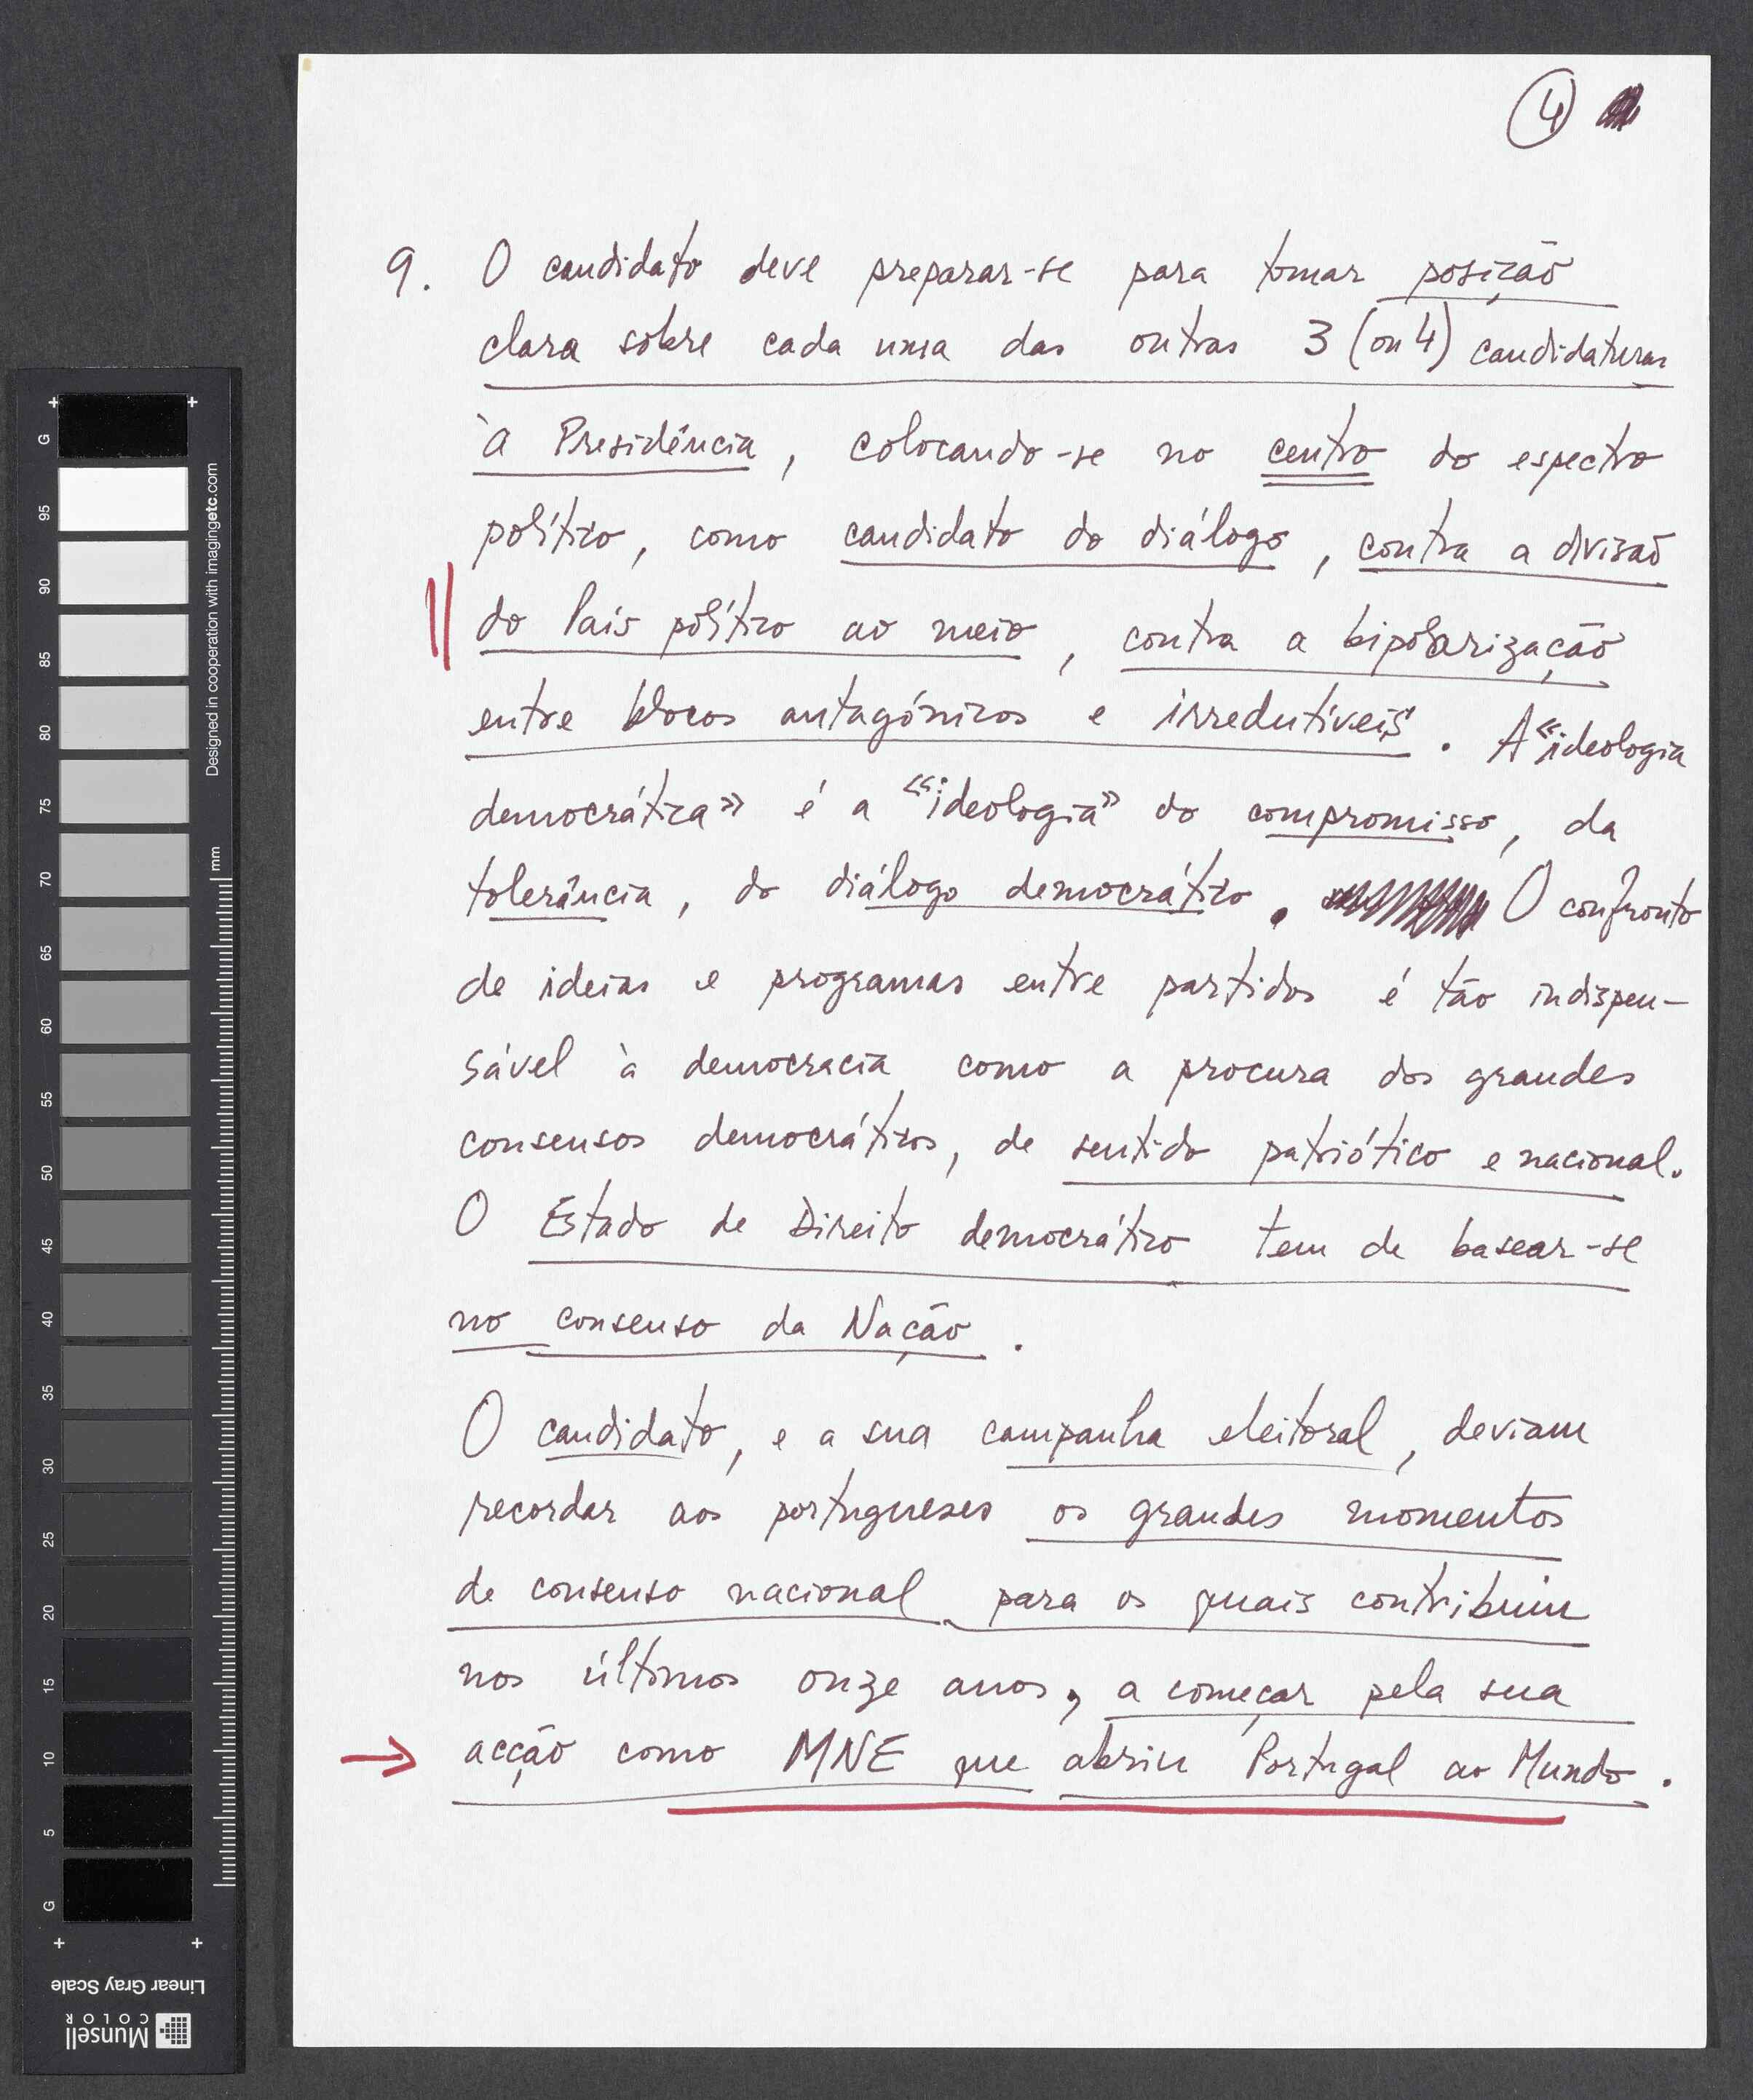 4
9. O candidato deve preparar-se para tomar posição
clara sobre cada uma das outras 3 (ou 4) candidaturas
à Presidência, colocando-se no centro do espectro
político, como candidato do diálogo, contra a divisão
do País político ao meio, contra a bipolarização
entre blocos antagónicos e irredutíveis. A «ideologia
democrática» é a «ideologia» do compromisso, da
tolerância, do diálogo democrático. O confronto
de ideias e programas entre partidos é tão indispen-
sável à democracia como a procura dos grandes
consensos democráticos, de sentido patriótico e nacional.
O Estado de Direito democrático tem de basear-se
no consenso da Nação.
O candidato, e a sua campanha eleitoral, deviam
recordar aos portugueses os grandes momentos
de consenso nacional para os quais contribuiu
nos últimos onze anos, a começar pela sua
→ acção como MNE que abriu Portugal ao Mundo.
G
95
90
85
80
75
70
65
60
55
50
45
40
35
30
25
20
15
10
5
G
Designed in cooperation with imagingetc.com
mm
Linear Gray Scale
Munsell
COLOR